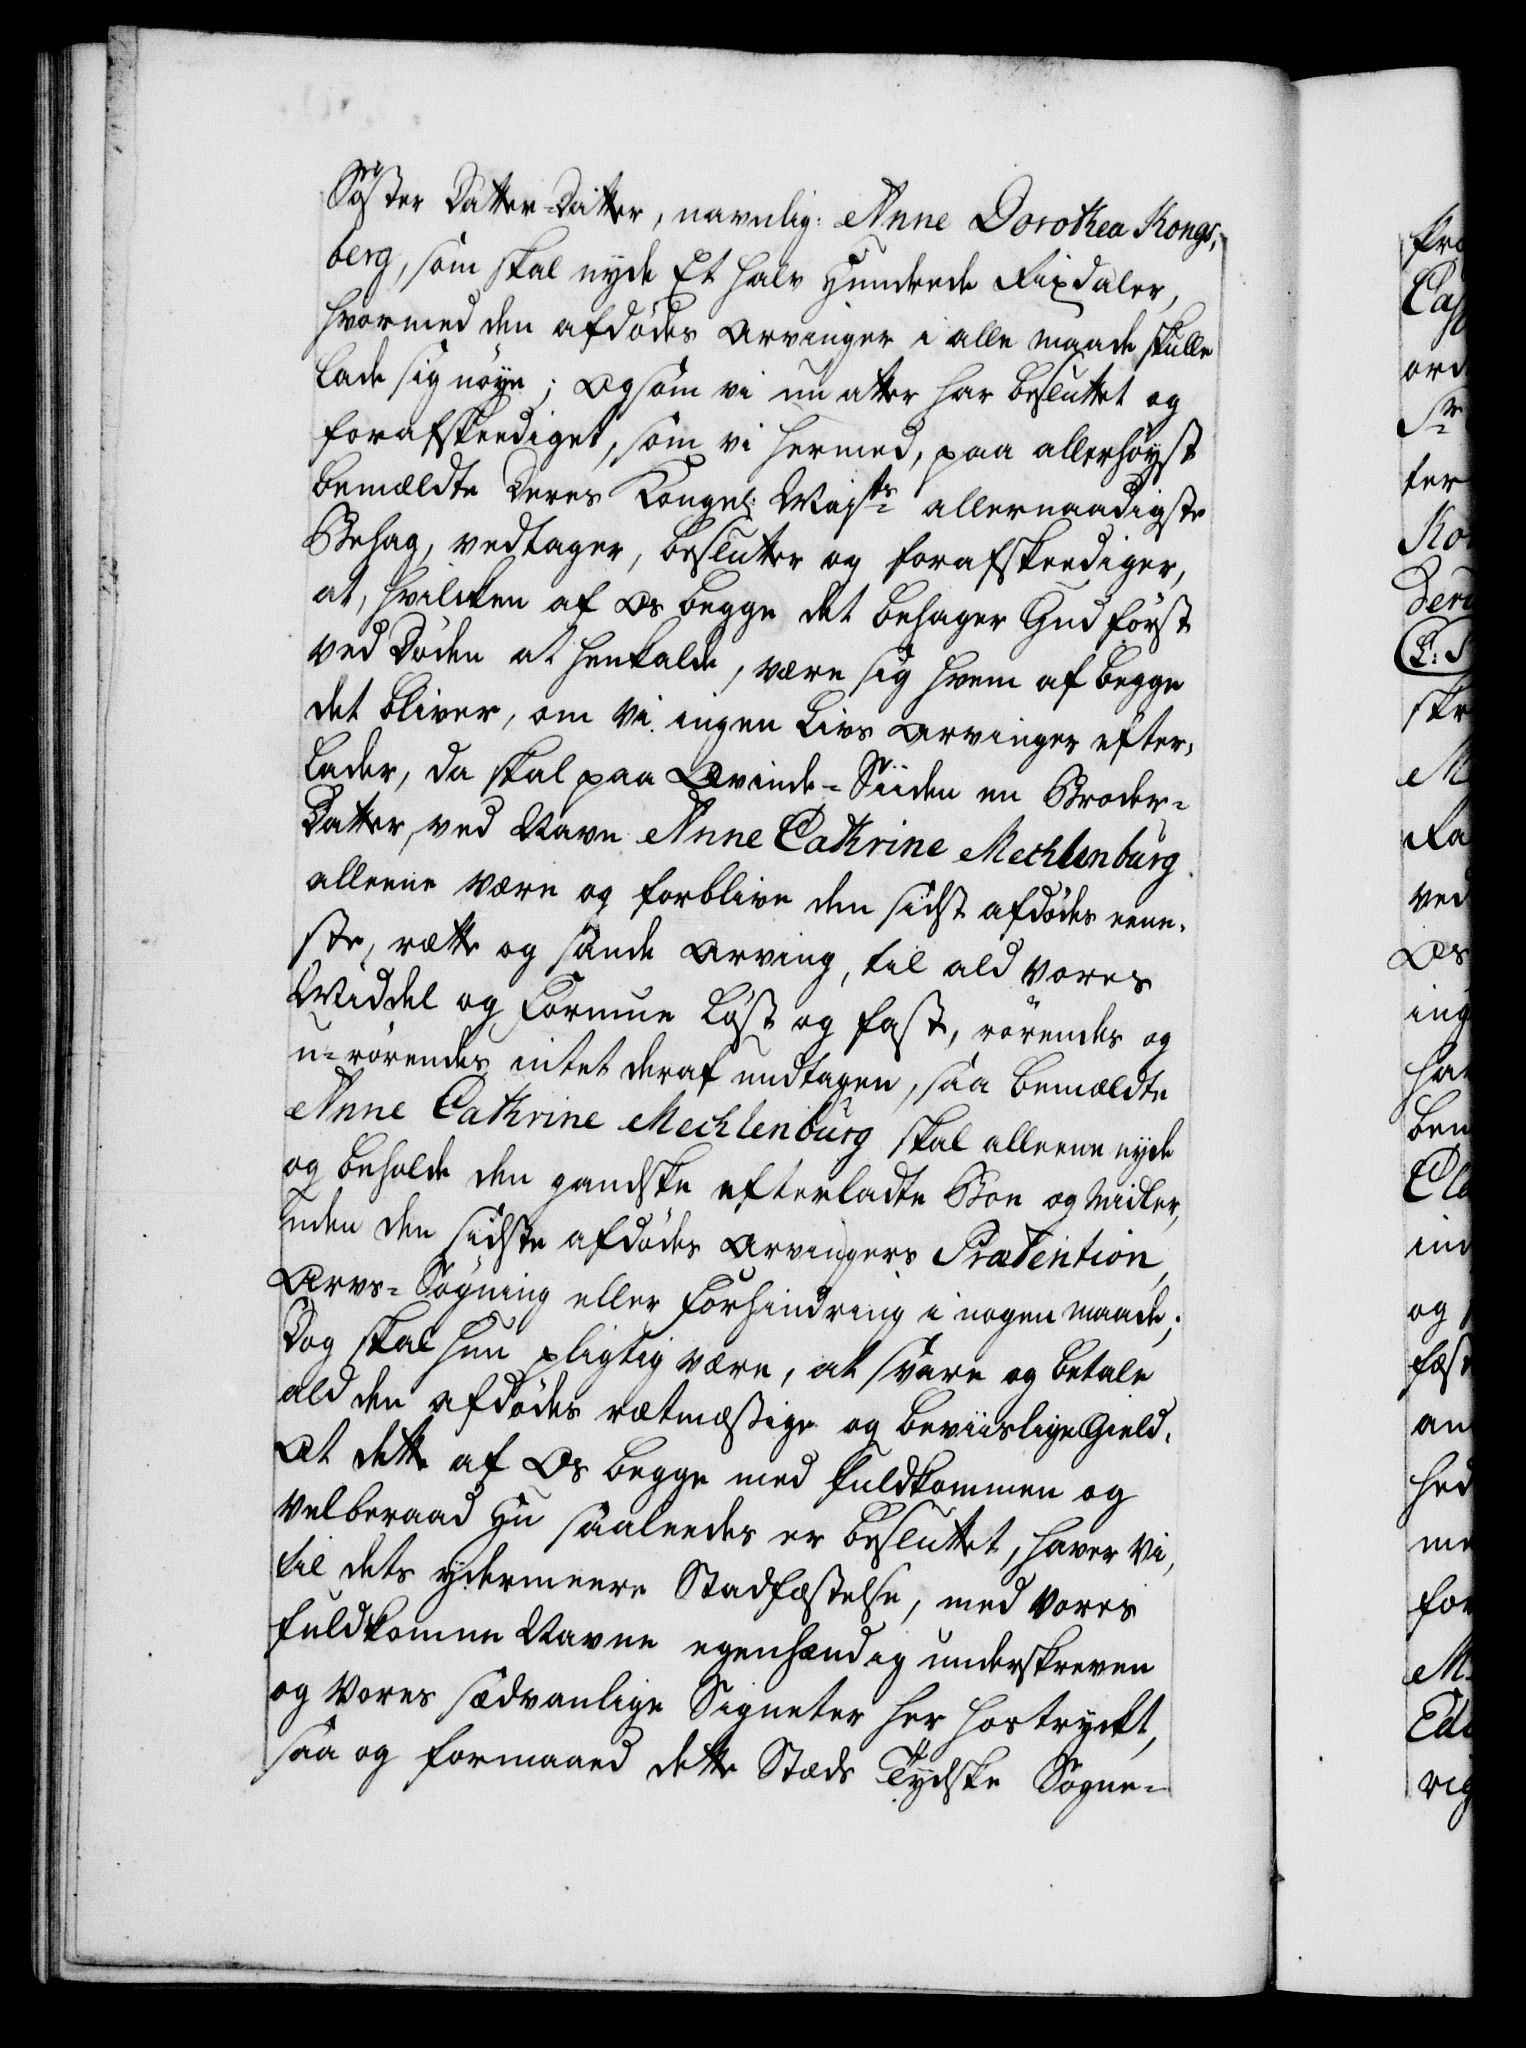 Søster Datter-Datter, navnlig: Anne Dorothea Kongs-
berg, som skal nyde Et halv Hundrede Rixdaler,
hvormed den afdødes Arvinger i alle maade skulle
lade sig nøye; Og som vi nu atter har besluttet og
forafskeediget, som vi hermed, paa allerhøyst
bemældte Deres Kongel: Majts allernaadigste
Behag, vedtager, beslutter og forafskeediger,
at, hvilcken af Os begge det behager Gud først
ved Døden at henkalde, være sig hvem af begge
det bliver, om Vi ingen Livs Arvinger efter-
lader, da skal paa Qvinde-Siiden en Broder-
Datter, ved Navn Anne Cathrine Mechlenburg
alleene være og forblive den sidst afdødes eene-
ste, rætte og sande Arving, til ald vores
Middel og Formue løst og fast, rørendes og
u-rørendes intet deraf undtagen, saa bemældte
Anne Cathrine Mechlenburg skal alleene nyde
og beholde den gandske efterladte Boe og Midler,
uden den sidste afdødes Arvingers Prætention,
Arvs-Søgning eller Forhindring i nogen maade;
Dog skal hun pligtig være, at svare og betale
ald den afdødes rætmæssige og beviislige Gield.
At dette af Os begge med fuldkommen og
velberaad Hu saaleedes er besluttet, haver Vi,
til dets ydermeere Stadfæstelse, med Vores
fuldkomne Navne egenhændig underskreven
og Vores sædvanlige Signeter her hostryckt,
saa og formaaed dette Stæds Tydske Sogne-